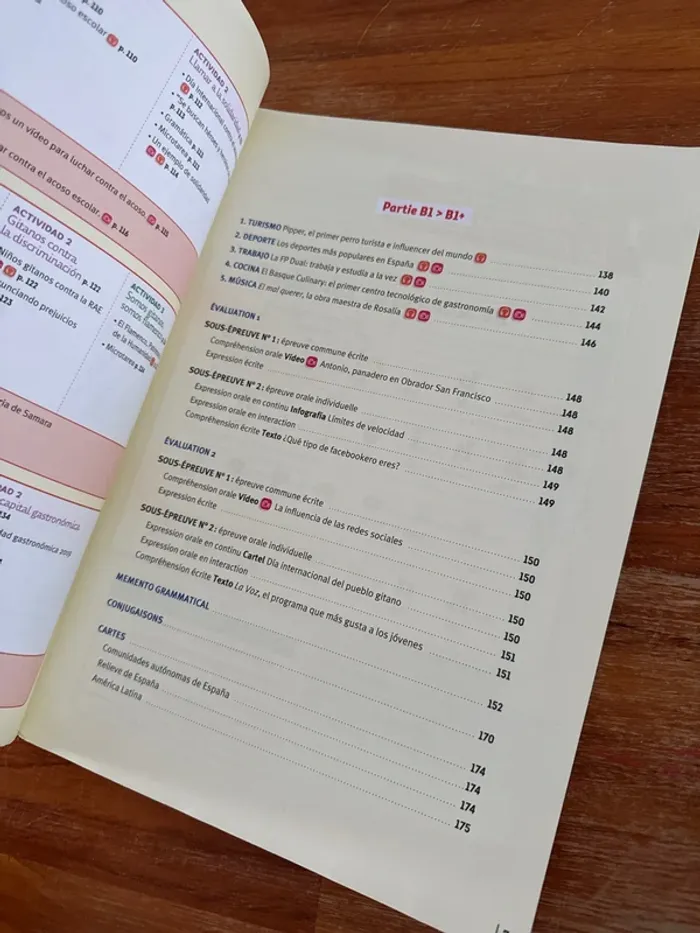 o escolar p. 110
ACTIVIDAD 2
Llamar a la solidaridad
• Día internacional contra
p. 112
• "Se buscan héroes y
p. 113
• Gramática p. 113
• Microtarea p. 113
• Un ejemplo de solidaridad
p. 114
os un vídeo para luchar contra el acoso. p. 115
ar contra el acoso escolar. p. 116
ACTIVIDAD 2
Gitanos contra
la discriminación p. 122
Niños gitanos contra la RAE
p. 122
nunciando prejuicios
123
ACTIVIDAD
Somos gitanos,
somos flamencos
• El Flamenco,
de la Humanidad
• Microtarea p. 124
ria de Samara
AD 2
capital gastronómica
134
dad gastronómica 2019
Partie B1 > B1+
1. TURISMO Pipper, el primer perro turista e influencer del mundo 138
2. DEPORTE Los deportes más populares en España 140
3. TRABAJO La FP Dual: trabaja y estudia a la vez 142
4. COCINA El Basque Culinary: el primer centro tecnológico de gastronomía 144
5. MÚSICA El mal querer, la obra maestra de Rosalía 146
ÉVALUATION 1 148
SOUS-ÉPREUVE N° 1 : épreuve commune écrite 148
Compréhension orale Vídeo Antonio, panadero en Obrador San Francisco 148
Expression écrite 148
SOUS-ÉPREUVE N° 2 : épreuve orale individuelle 148
Expression orale en continu Infografía Límites de velocidad 148
Expression orale en interaction 149
Compréhension écrite Texto ¿Qué tipo de facebookero eres? 149
ÉVALUATION 2 150
SOUS-ÉPREUVE N° 1 : épreuve commune écrite 150
Compréhension orale Vídeo La influencia de las redes sociales 150
Expression écrite 150
SOUS-ÉPREUVE N° 2 : épreuve orale individuelle 150
Expression orale en continu Cartel Día internacional del pueblo gitano 150
Expression orale en interaction 151
Compréhension écrite Texto La Voz, el programa que más gusta a los jóvenes 151
MEMENTO GRAMMATICAL 152
CONJUGAISONS 170
CARTES 174
Comunidades autónomas de España 174
Relieve de España 174
América Latina 175